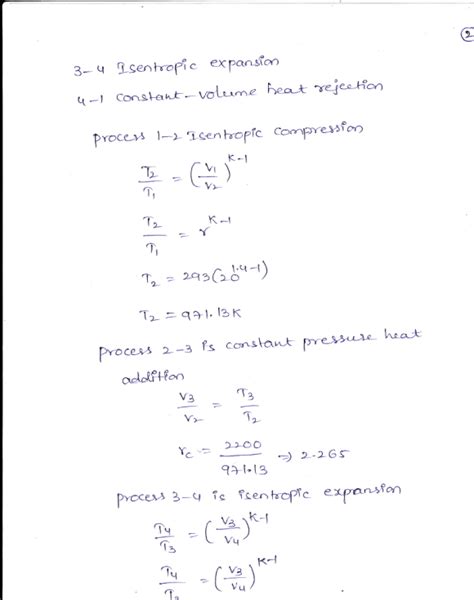 2
3-4 Isentropic expansion
4-1 constant-volume heat rejection
process 1-2 Isentropic compression
T2/T1 = (V1/V2)^K-1
T2/T1 = r^K-1
T2 = 293(20^1.4-1)
T2 = 971.13K
process 2-3 is constant pressure heat
addition
V3/V2 = T3/T2
rc = 2200/971.13 ⇒ 2.265
process 3-4 is isentropic expansion
T4/T3 = (V3/V4)^K-1
T4/T3 = (V3/V4)^K-1